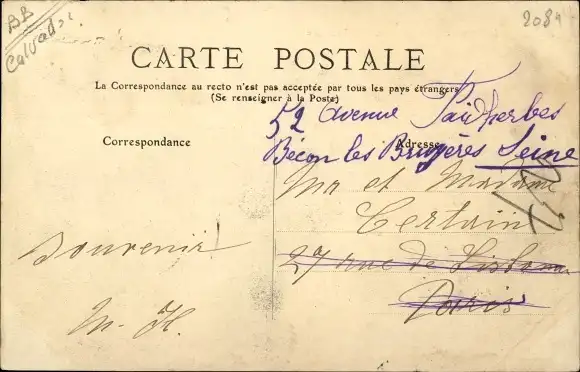 BB
Calvados
2084
CARTE POSTALE
La Correspondance au recto n'est pas acceptée par tous les pays étrangers
(Se renseigner à la Poste)
52 avenue Faidherbes
Correspondance
Adresse
Bécon les Bruyères Seine
Mr et Madame
Certain
27 rue de Lisbonne
Paris
Souvenir
M. H.